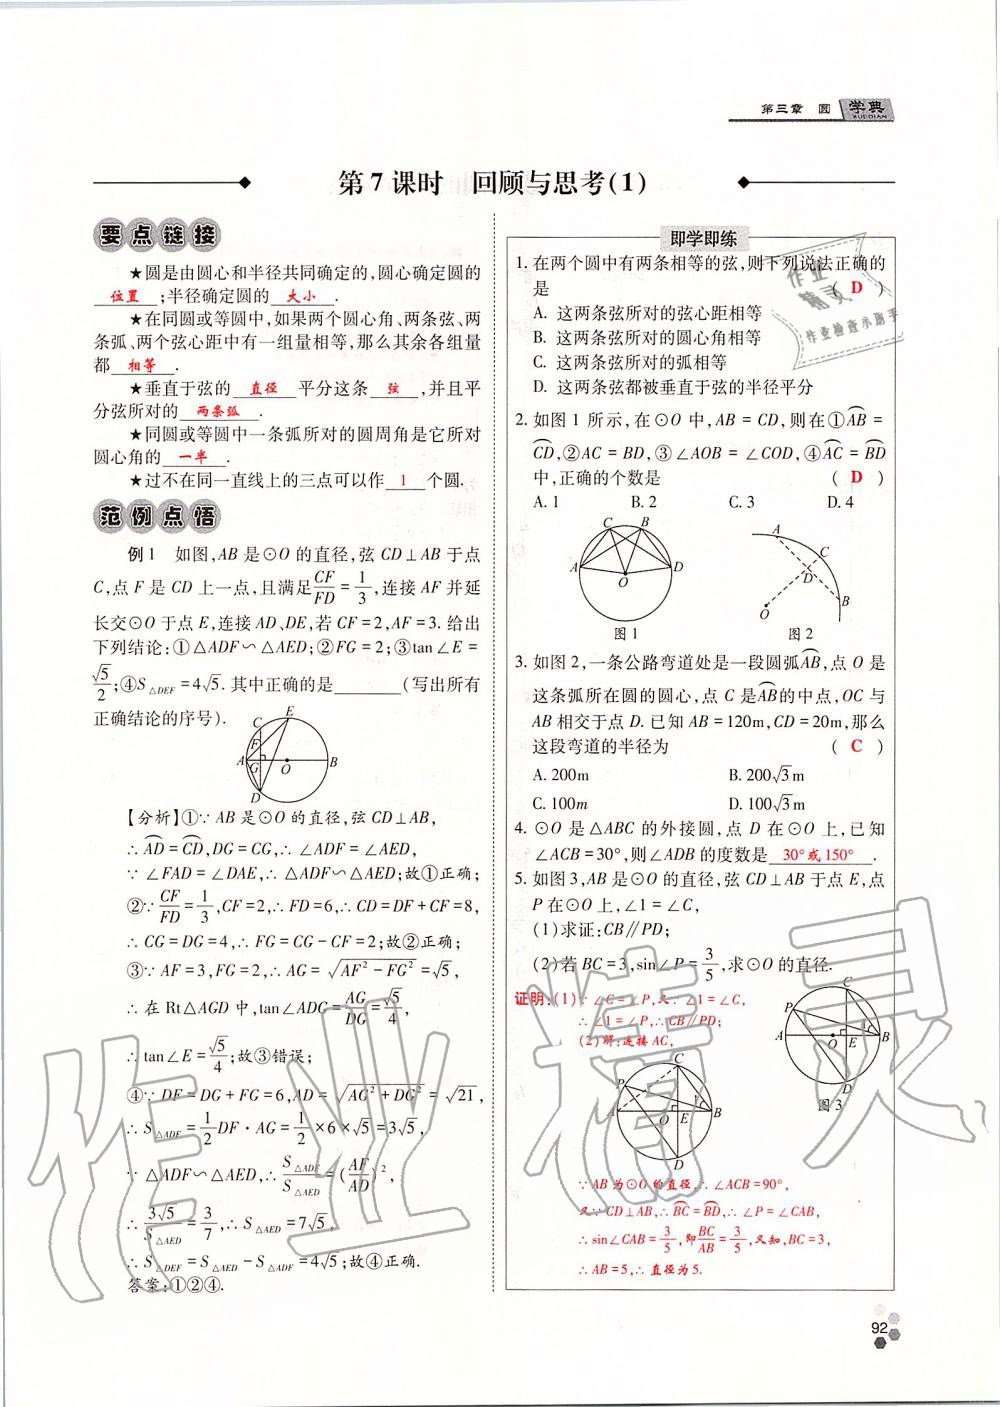 第三章 圆 学典
XUEDIAN
第7课时 回顾与思考(1)
要点链接
★圆是由圆心和半径共同确定的,圆心确定圆的
位置;半径确定圆的大小.
★在同圆或等圆中,如果两个圆心角、两条弦、两
条弧、两个弦心距中有一组量相等,那么其余各组量
都相等.
★垂直于弦的直径平分这条弦,并且平
分弦所对的两条弧.
★同圆或等圆中一条弧所对的圆周角是它所对
圆心角的一半.
★过不在同一直线上的三点可以作1个圆.
范例点悟
例1 如图,AB是⊙O的直径,弦CD⊥AB于点
C,点F是CD上一点,且满足CF/FD=1/3,连接AF并延
长交⊙O于点E,连接AD、DE,若CF=2,AF=3.给出
下列结论:①△ADF∽△AED;②FG=2;③tan∠E=
√5/2;④S△DEF=4√5.其中正确的是________(写出所有
正确结论的序号).
C E F A G O B D
【分析】①∵AB是⊙O的直径,弦CD⊥AB,
∴AD⌒=CD⌒,DG=CG,∴∠ADF=∠AED,
∵∠FAD=∠DAE,∴△ADF∽△AED;故①正确;
②∵CF/FD=1/3,CF=2,∴FD=6,∴CD=DF+CF=8,
∴CG=DG=4,∴FG=CG-CF=2;故②正确;
③∵AF=3,FG=2,∴AG=√(AF²-FG²)=√5,
∴在Rt△AGD中,tan∠ADG=AG/DG=√5/4,
∴tan∠E=√5/4;故③错误;
④∵DF=DG+FG=6,AD=√(AG²+DG²)=√21,
∴S△ADF=1/2DF·AG=1/2×6×√5=3√5,
∵△ADF∽△AED,∴S△ADF/S△AED=(AF/AD)²,
∴3√5/S△AED=3/7,∴S△AED=7√5,
∴S△DEF=S△AED-S△ADF=4√5;故④正确.
答案:①②④.
即学即练
1. 在两个圆中有两条相等的弦,则下列说法正确的
是 ( D )
A. 这两条弦所对的弦心距相等
B. 这两条弦所对的圆心角相等
C. 这两条弦所对的弧相等
D. 这两条弦都被垂直于弦的半径平分
2. 如图1所示,在⊙O中,AB=CD,则在①AB⌒=
CD⌒,②AC=BD,③∠AOB=∠COD,④AC⌒=BD⌒
中,正确的个数是 ( D )
A. 1 B. 2 C. 3 D. 4
C B A D O
图1
A C D B O
图2
3. 如图2,一条公路弯道处是一段圆弧AB⌒,点O是
这条弧所在圆的圆心,点C是AB⌒的中点,OC与
AB相交于点D.已知AB=120m,CD=20m,那么
这段弯道的半径为 ( C )
A. 200m B. 200√3m
C. 100m D. 100√3m
4. ⊙O是△ABC的外接圆,点D在⊙O上,已知
∠ACB=30°,则∠ADB的度数是30°或150°.
5. 如图3,AB是⊙O的直径,弦CD⊥AB于点E,点
P在⊙O上,∠1=∠C,
(1)求证:CB∥PD;
(2)若BC=3,sin∠P=3/5,求⊙O的直径.
证明:(1)∵∠C=∠P,又∵∠1=∠C,
∴∠1=∠P,∴CB∥PD;
(2)解:连接AC,
P C A O E 1 B D
图3
P C A O E 1 B D
∵AB为⊙O的直径,∴∠ACB=90°,
又∵CD⊥AB,∴BC⌒=BD⌒,∴∠P=∠CAB,
∴sin∠CAB=3/5,即BC/AB=3/5,又知,BC=3,
∴AB=5,∴直径为5.
92
作业精灵
作业
精灵
作业检查小助手